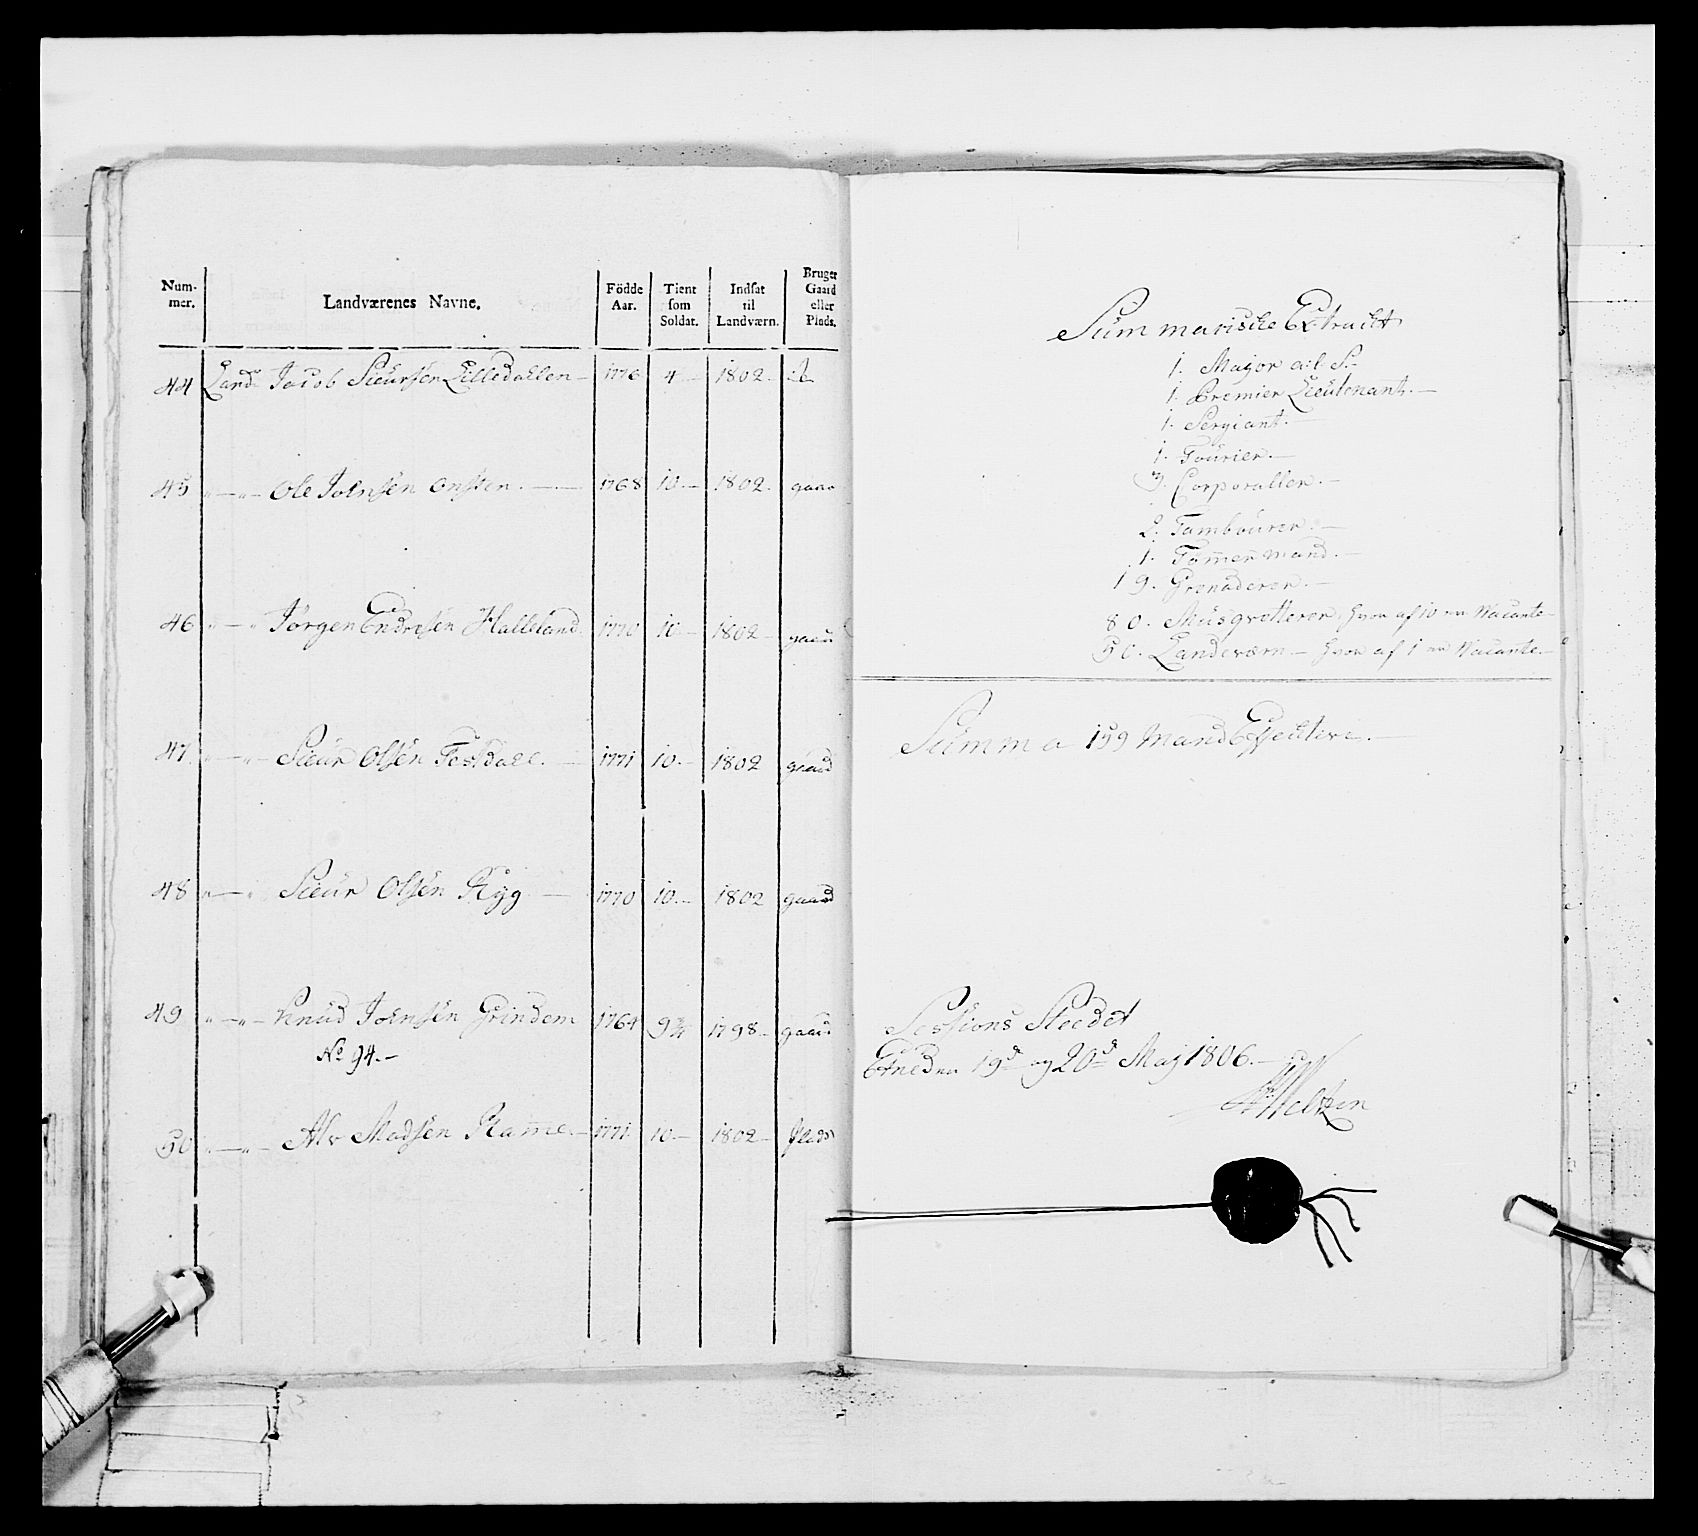 Num-
mer.
Landværenes Navne.
Födde
Aar.
Tient
som
Soldat.
Indsat
til
Landværn.
Bruger
Gaard
eller
Plads.
44 Land Jacob Sieursen Lilledallen 1776 4 1802
45 " " Ole Johnsen Onsten 1768 10 1802 gaard
46 " " Jörgen Endresen Halleland 1770 10 1802 gaard
47 " " Sieur Olsen Festdall 1771 10 1802 gaard
48 " " Sieur Olsen Ryg 1770 10 1802 gaard
49 " " Knud Johnsen Grindem 1764 9¾ 1798 gaard
No 94.
50 " " Alv Madsen Rame 1771 10 1802 Plads
Summariske Extract
1. Major a: l. S.
1. Premier Lieutenant.
1. Sergiant.
1. Fourier.
3. Corporaller.
2. Tambourer.
1. Tömermand.
19. Grenaderer.
80. Musqvetterer, hvor af 10 Vacante
50. Landeværn hvor af 1 Vacante.
Summa 159 Mand Effective.
Sessions Steedet
Etne den 19d og 20d Maj 1806.
Weltzen